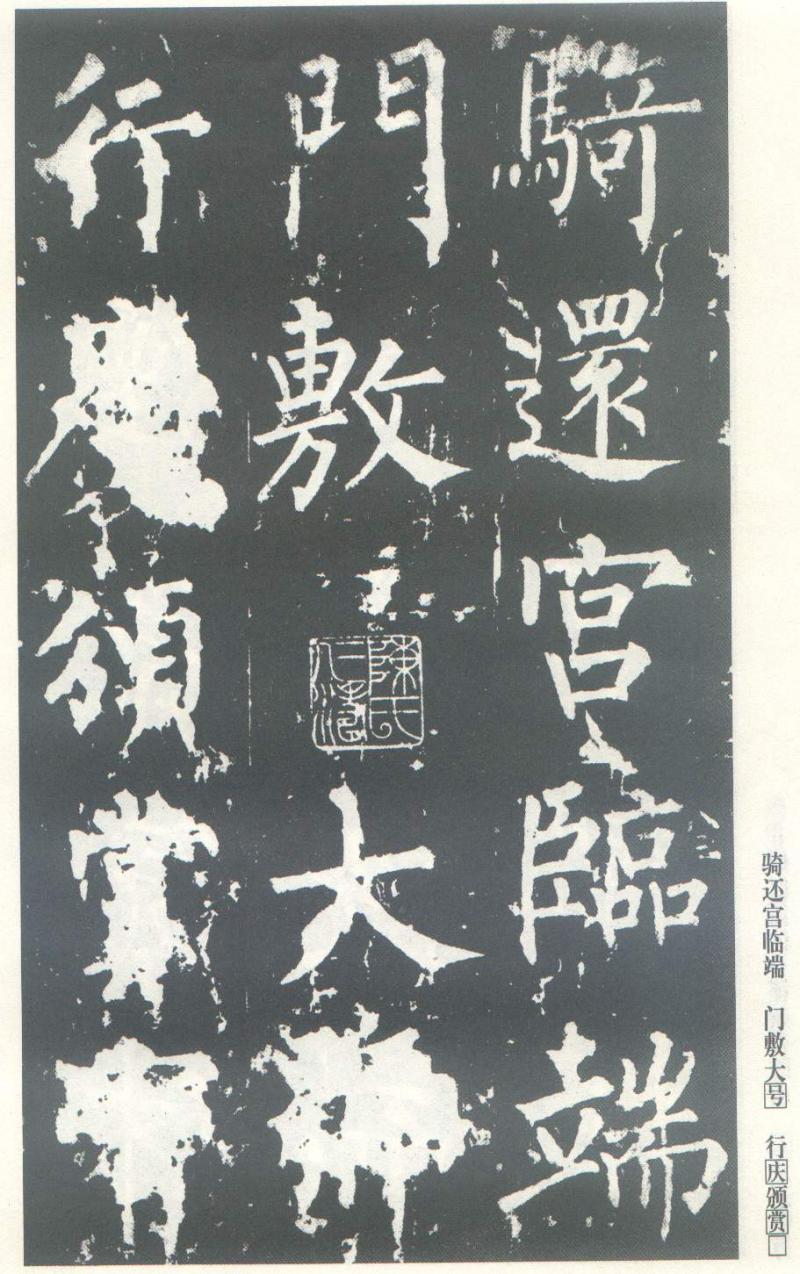 騎還宮臨端
門敷大
行慶頒賞
骑还宫临端 门敷大号 行庆颁赏□
陳氏